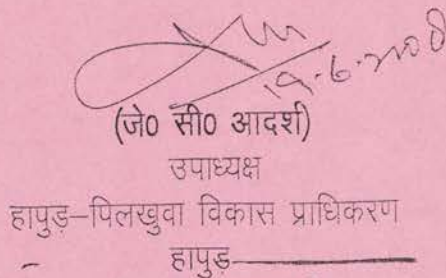 19.6.2008
(जे0 सी0 आदर्श)
उपाध्यक्ष
हापुड़–पिलखुवा विकास प्राधिकरण
हापुड़